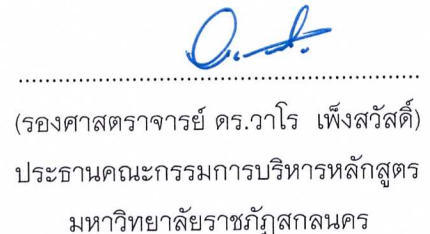 (รองศาสตราจารย์ ดร.วาโร เพ็งสวัสดิ์)
ประธานคณะกรรมการบริหารหลักสูตร
มหาวิทยาลัยราชภัฏสกลนคร